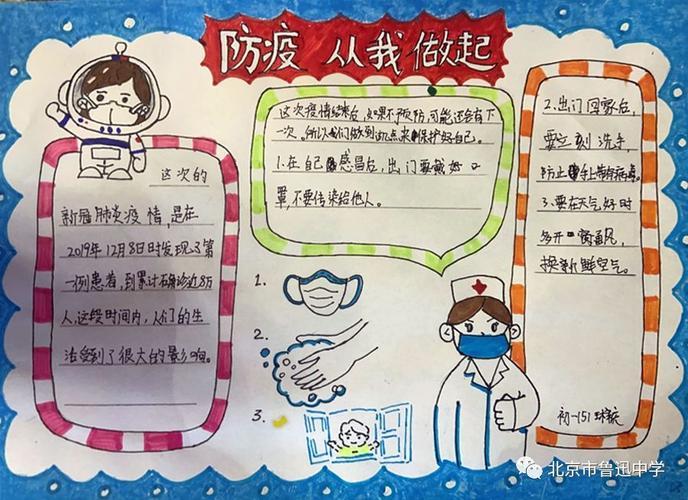 防疫 从我做起
这次的
新冠肺炎疫情,是在
2019年12月8日时发现了第
一例患者,到累计确诊近8万
人这段时间内,人们的生
活受到了很大的影响。
这次疫情结束后,如果不预防,可能还会有下
一次。所以我们做到几点来保护好自己。
1.在自己感冒后,出门要戴好口
罩,不要传染给他人。
1.
2.
3.
2.出门回家后,
要立刻洗手,
防止手上带有病毒。
3.要在天气好时
多开窗通风,
换新鲜空气。
初一151
北京市鲁迅中学